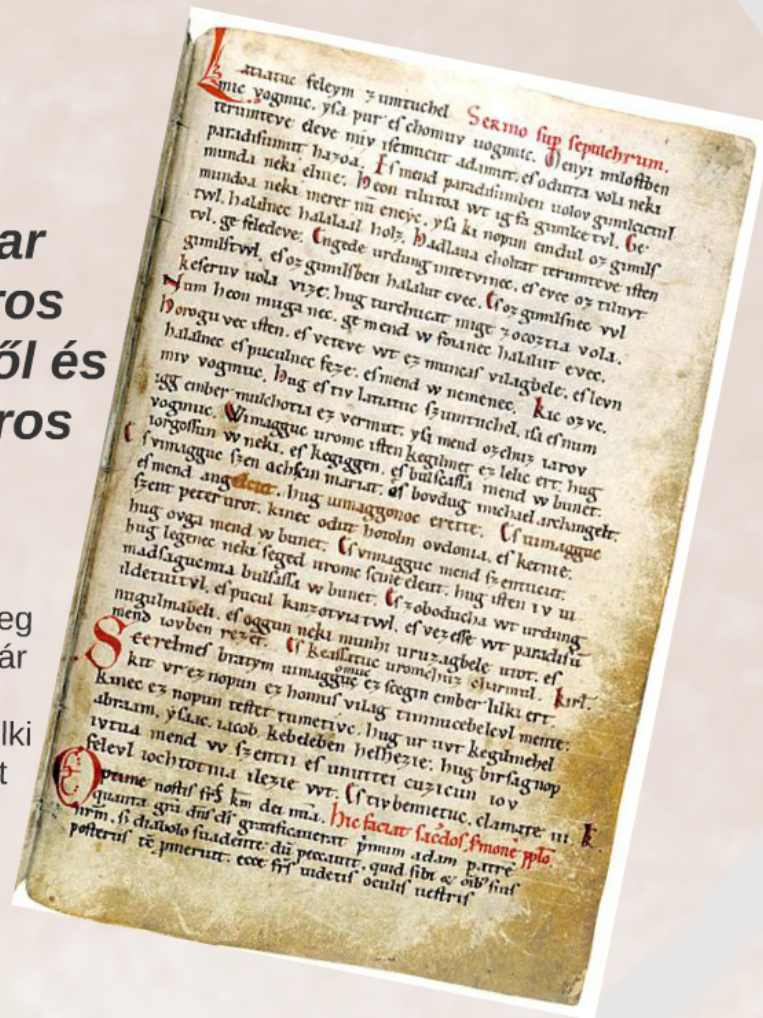 ar
ros
ől és
ros
eg
ár
lki
t
Latiatuc feleym zumtuchel Sermo sup sepulchrum.
mic vogmuc. ysa pur es chomuv uogmuc. Menyi milostben
terumteve eleve miv isemucut adamut. es odutta vola neki
paradisumut hazoa. Es mend paradisumben uolov gimilcictul
munda neki elnie. Heon tilutoa wt ig fa gimilce tvl. Ge
mundoa neki meret nu eneyc. ysa ki nopun emdul oz gimils
twl. halalnec halalaal holz. Hadlaua choltat terumteve isten
tvl. ge feledeve. Engede urdung intetvinec. es evec oz tiluvt
gimilstvvl. es oz gimilsben halalut evec. Es oz gimilsnec vvl
keseruv uola vize. hug turchucat mige zocoztia vola.
Num heon muga nec. ge mend w foianec halalut evec.
Horogu vec isten. es veteve wt ez muncas vilagbele. es levn
halalnec es puculnec feze. es mend w nemenec. Kic ozvc.
miv vogmuc. Hug es tiv latiatuc szumtuchel. isa es num
igg ember mulchotia ez vermut. ysa mend ozchuz iarov
vogmuc. Wimagguc uromc isten kegilmet ez lelic ert. hug
iorgossun w neki. es kegiggen. es bulsassa mend w bunet.
Es vimagguc szen achsin mariat. es bovdug michael archangelt.
es mend angelcut. hug uimaggonoc erette. Es uimagguc
szent peter urot. kinec odut hotolm ovdonia. es ketnie.
hug ovga mend w bunet. Es vimagguc mend szentucut.
hug legenec neki seged uromc scine eleut. hug isten iv ui
madsaguemia bulsassa w bunet. Es zoboducha wt urdung
ildetuitvl. es pucul kinzotviatwl. es vezesse wt paradisũ
nugulmabeli. es oggun neki munhi uruzagbele utot. es
mend iovben rezet. Es keassatuc uromchuz charmul. Kirl.
Scerelmes bratym uimagguc omuc ez scegin ember lilki ert.
kit vr ez nopun ez homus vilag timnucebelevl mente.
kinec ez nopun testet tumetivc. hug ur uvt kegilmehel
abraam. ysaac. iacob. kebeleben helhezie. hug birsagnop
ivtua mend vv szentii es unuttei cuzicun iov
felevl iochtotnia ilezie vvt. Es tiv bennetuc. clamate iii. K.
Optime nostis frs km dei mia. Hic faciat sacdos smone pplo.
quanta gra dns ds gratificauerat pmum adam patre
nrm. si diabolo suadente
posteris
ecce frs uidetis oculis uestris